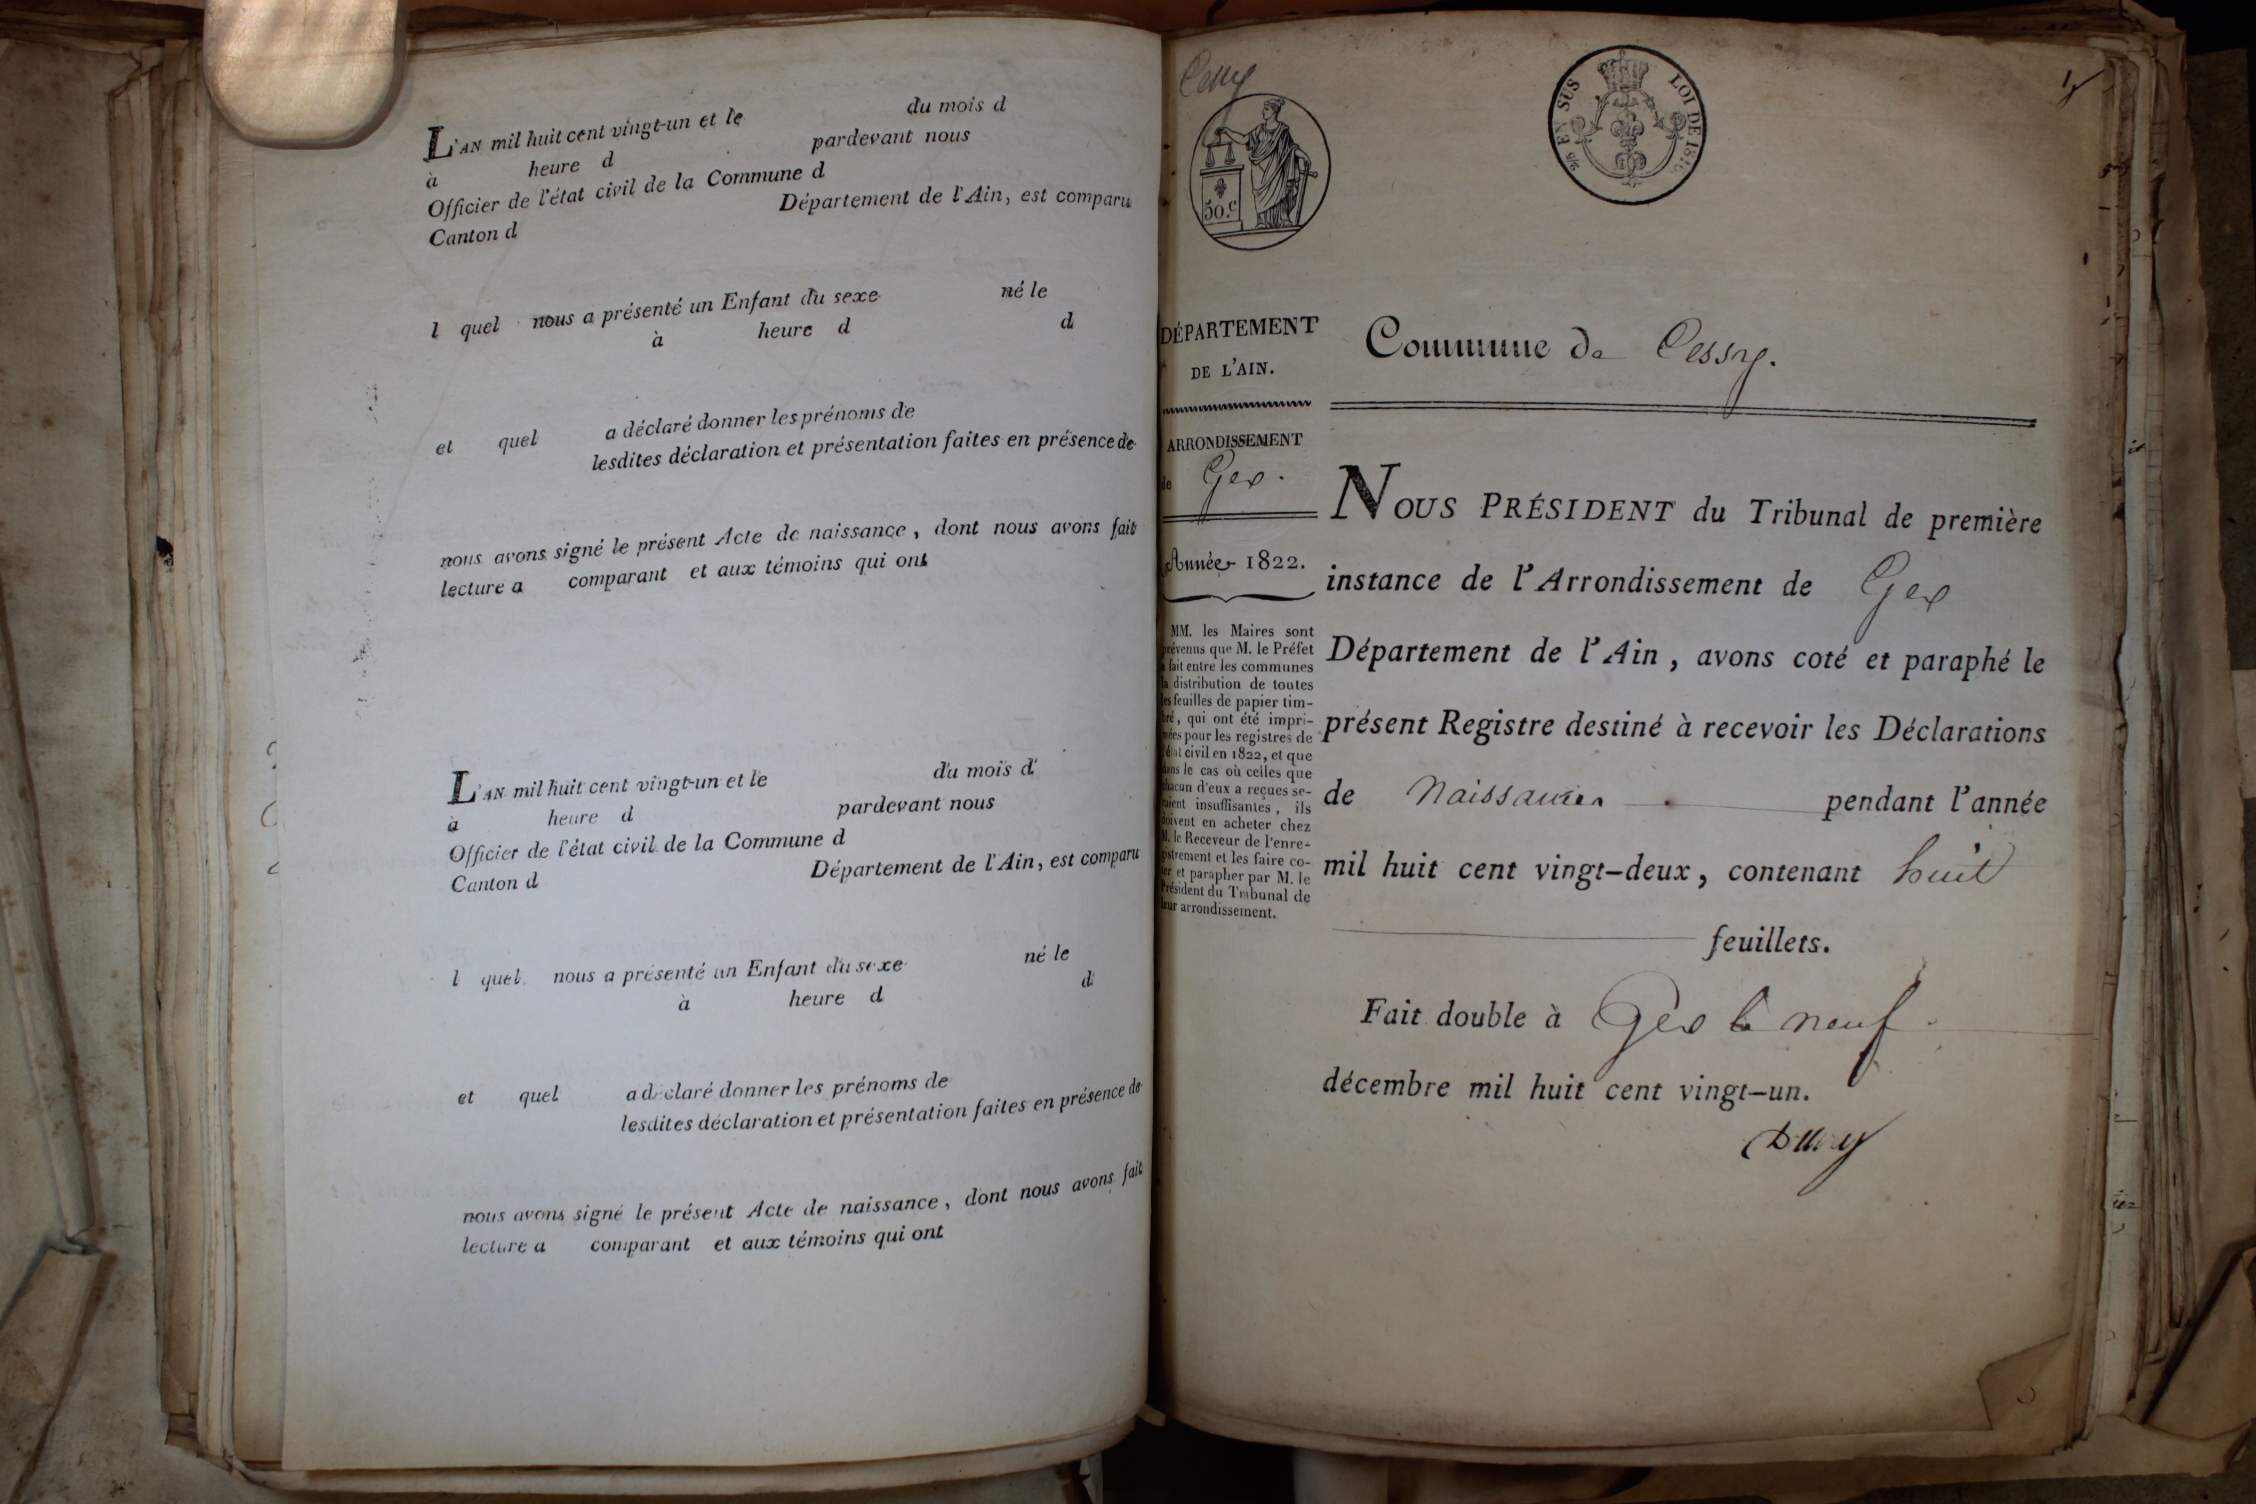 L'AN mil huit cent vingt-un et le du mois d
à heure d pardevant nous
Officier de l'état civil de la Commune d
Canton d Département de l'Ain, est comparu
l quel nous a présenté un Enfant du sexe né le
à heure d d
et quel a déclaré donner les prénoms de
lesdites déclaration et présentation faites en présence de
nous avons signé le présent Acte de naissance, dont nous avons fait
lecture a comparant et aux témoins qui ont
L'AN mil huit cent vingt-un et le du mois d
à heure d pardevant nous
Officier de l'état civil de la Commune d
Canton d Département de l'Ain, est comparu
l quel nous a présenté un Enfant du sexe né le
à heure d d
et quel a déclaré donner les prénoms de
lesdites déclaration et présentation faites en présence de
nous avons signé le présent Acte de naissance, dont nous avons fait
lecture a comparant et aux témoins qui ont
50.c
EN SUS LOI DE
DÉPARTEMENT
DE L'AIN.
ARRONDISSEMENT
de Gex.
Année 1822.
MM. les Maires sont
prévenus que M. le Préfet
a fait entre les communes
la distribution de toutes
les feuilles de papier tim-
bré, qui ont été impri-
mées pour les registres de
l'état civil en 1822, et que
dans le cas où celles que
chacun d'eux a reçues se-
raient insuffisantes, ils
doivent en acheter chez
M. le Receveur de l'enre-
gistrement et les faire co-
ter et parapher par M. le
Président du Tribunal de
leur arrondissement.
Commune de Cessy.
NOUS PRÉSIDENT du Tribunal de première
instance de l'Arrondissement de Gex
Département de l'Ain, avons coté et paraphé le
présent Registre destiné à recevoir les Déclarations
de Naissances pendant l'année
mil huit cent vingt-deux, contenant huit
feuillets.
Fait double à Gex le neuf
décembre mil huit cent vingt-un.